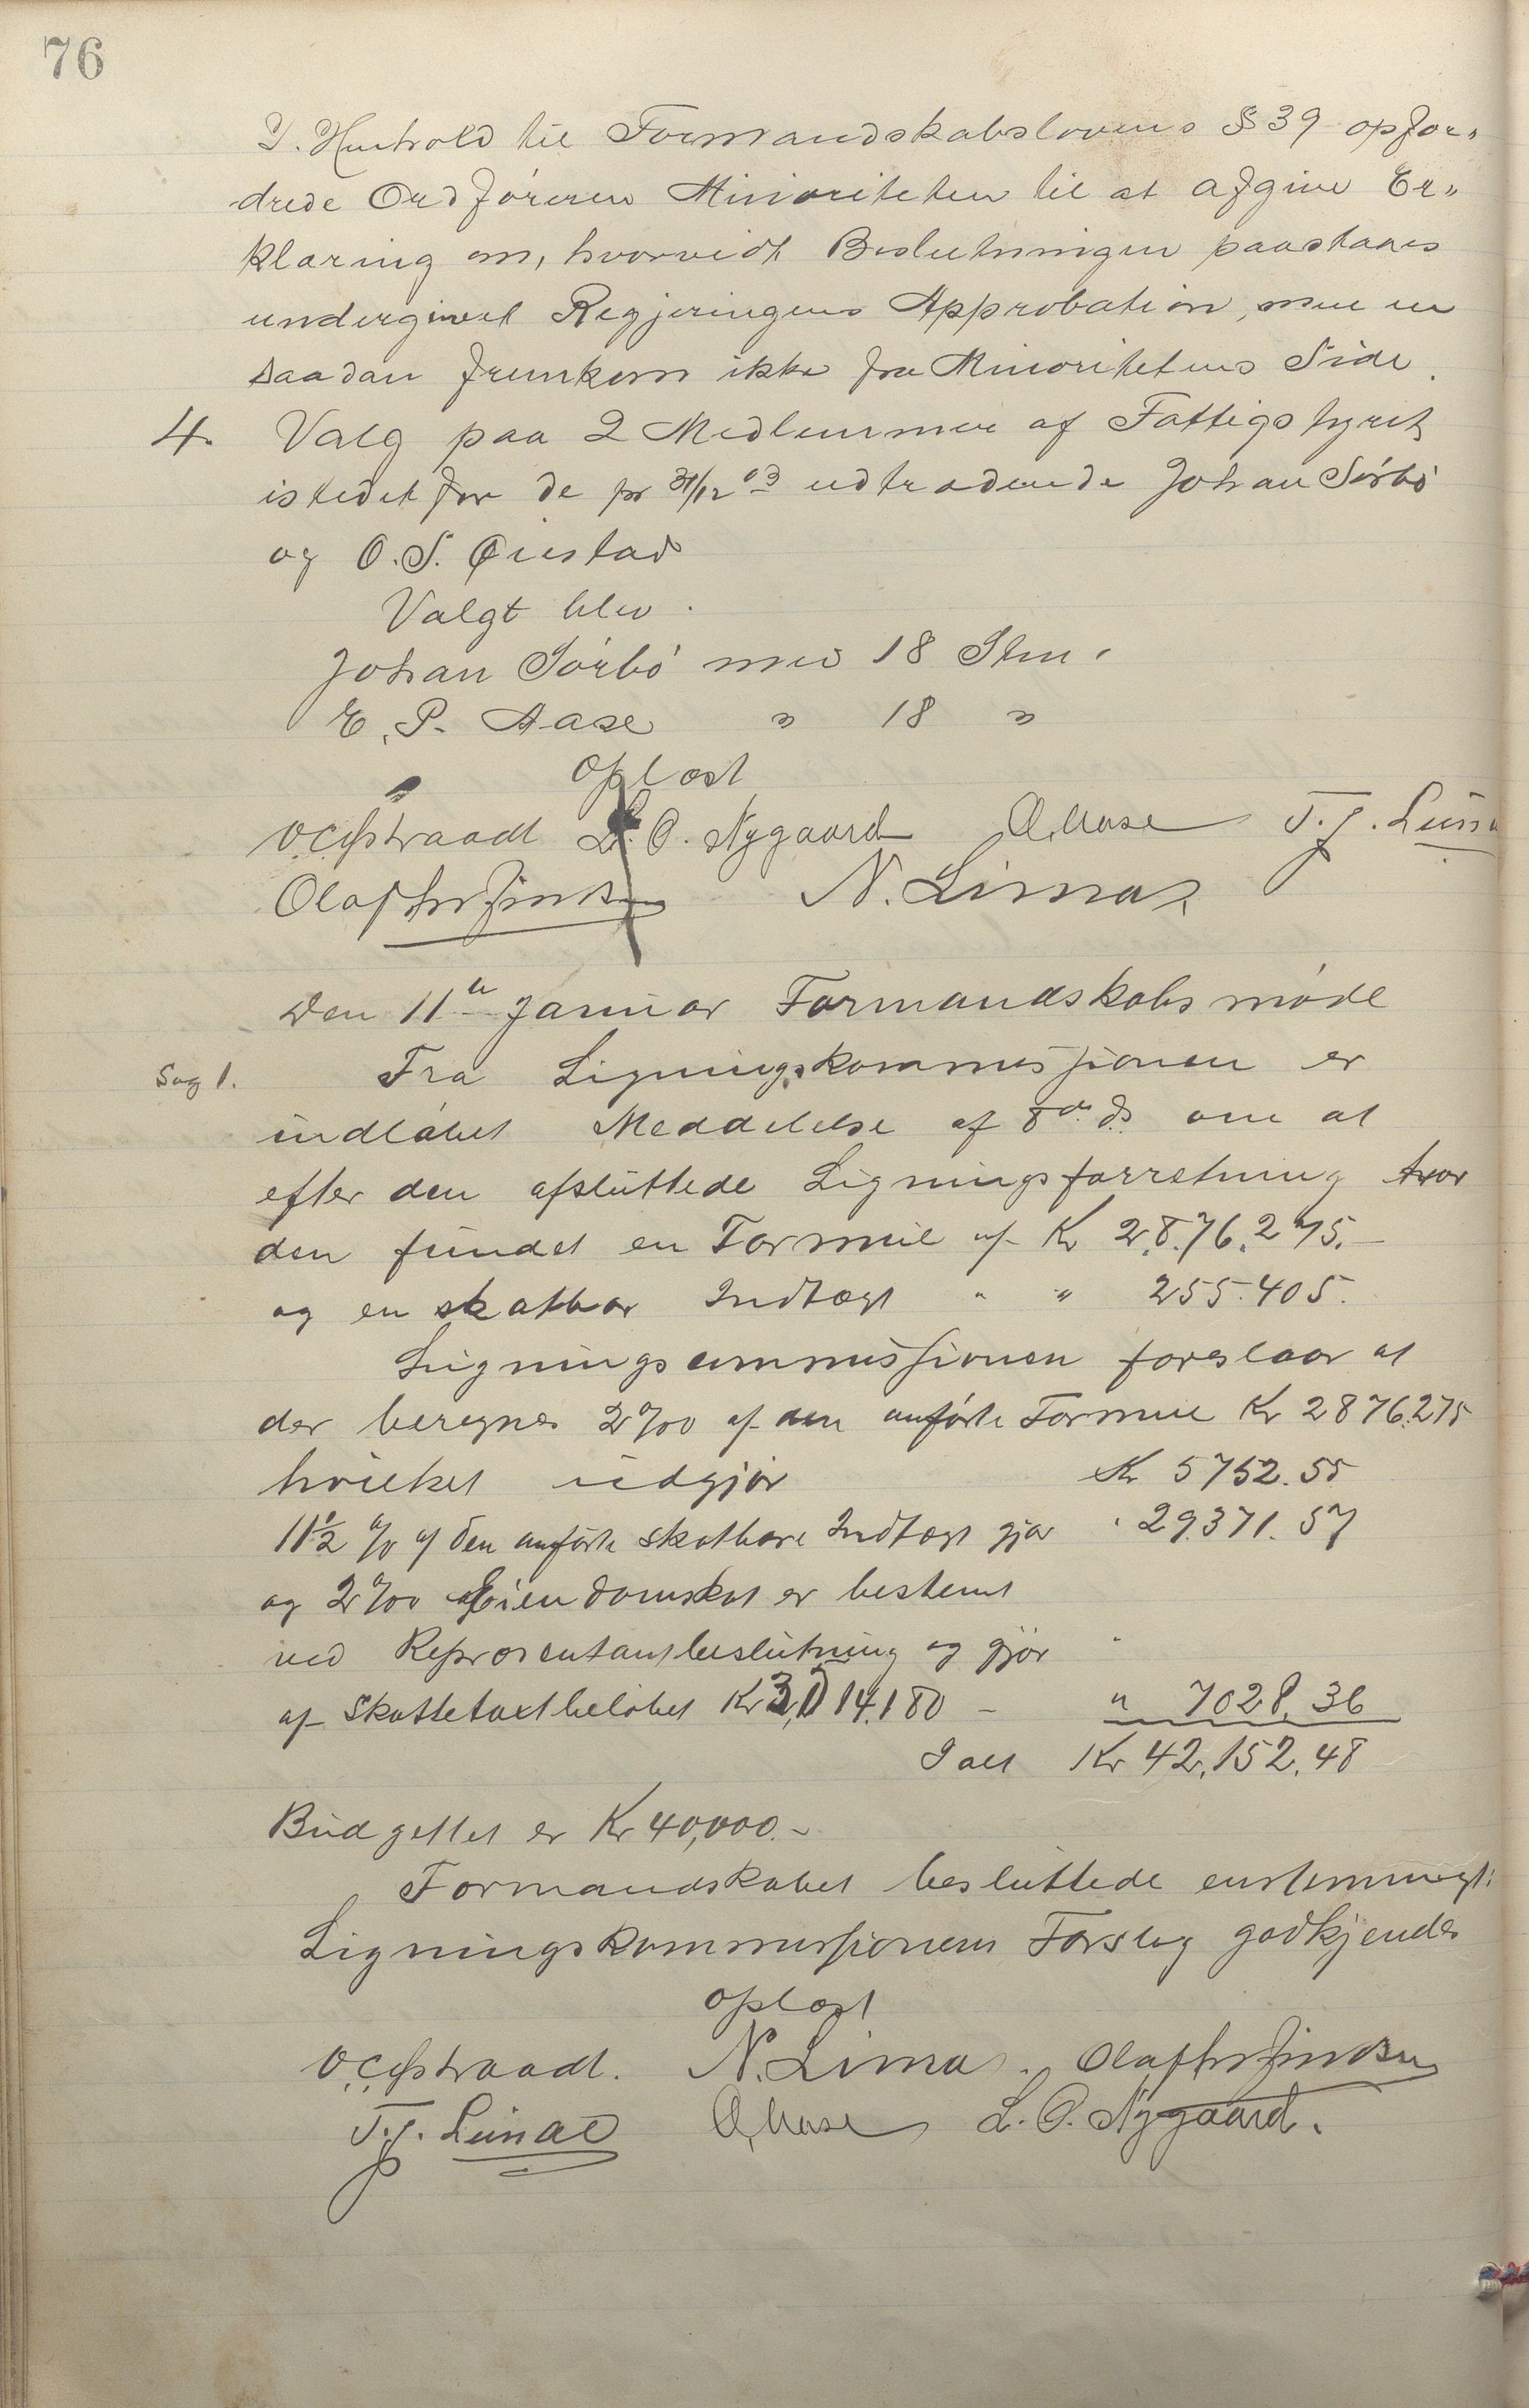 76
I Henhold til Formandskabslovens § 39 opfor-
drede Ordføreren Minoriteten til at afgive Er-
klæring om, hvorvidt Beslutningen paastaaes
undergivet Regjeringens Approbation, men en
saadan fremkom ikke fra Minoritetens Side.
4. Valg paa 2 Medlemmer af Fattigstyret
istedet for de pr 31/12 03 udtrædende Johan Sørbø
og O. S. Øiestad
Valgt blev.
Johan Sørbø med 18 Stm.
E. P. Aase " 18 "
Oplæst
O. C. Østraadt L. O. Nygaard O. Aase T. J. Lima
Olaf N. Lima
Den 11te Januar Formandskabsmøde
Sag 1. Fra Ligningskommissionen er
indløbet Meddelelse af 8de ds. om at
efter den afsluttede Ligningsforretning hvor
den fundet en Formue af Kr 2.876.275.-
og en skatbar Indtægt " " 255.405.
Ligningscommissionen foreslaar at
der beregnes 2 0/00 af den anførte Formue Kr 2876.275
hvilket udgjør Kr 5752.55
11 1/2 % af den anførte skatbare Indtægt gjør " 29.371.57
og 2 0/00 Eiendomskat er bestemt
ved Repræsentantbeslutning og gjør "
af Skattetaxtbeløbet Kr 3,514.180 - " 7028.36
Ialt Kr 42,152.48
Budgettet er Kr 40,000.-
Formandskabet besluttede enstemmigt:
Ligningskommissionens Forslag godkjendes
Oplæst
O. C. Østraadt. N. Lima. Olaf
T. J. Limae O. Aase L. O. Nygaard.